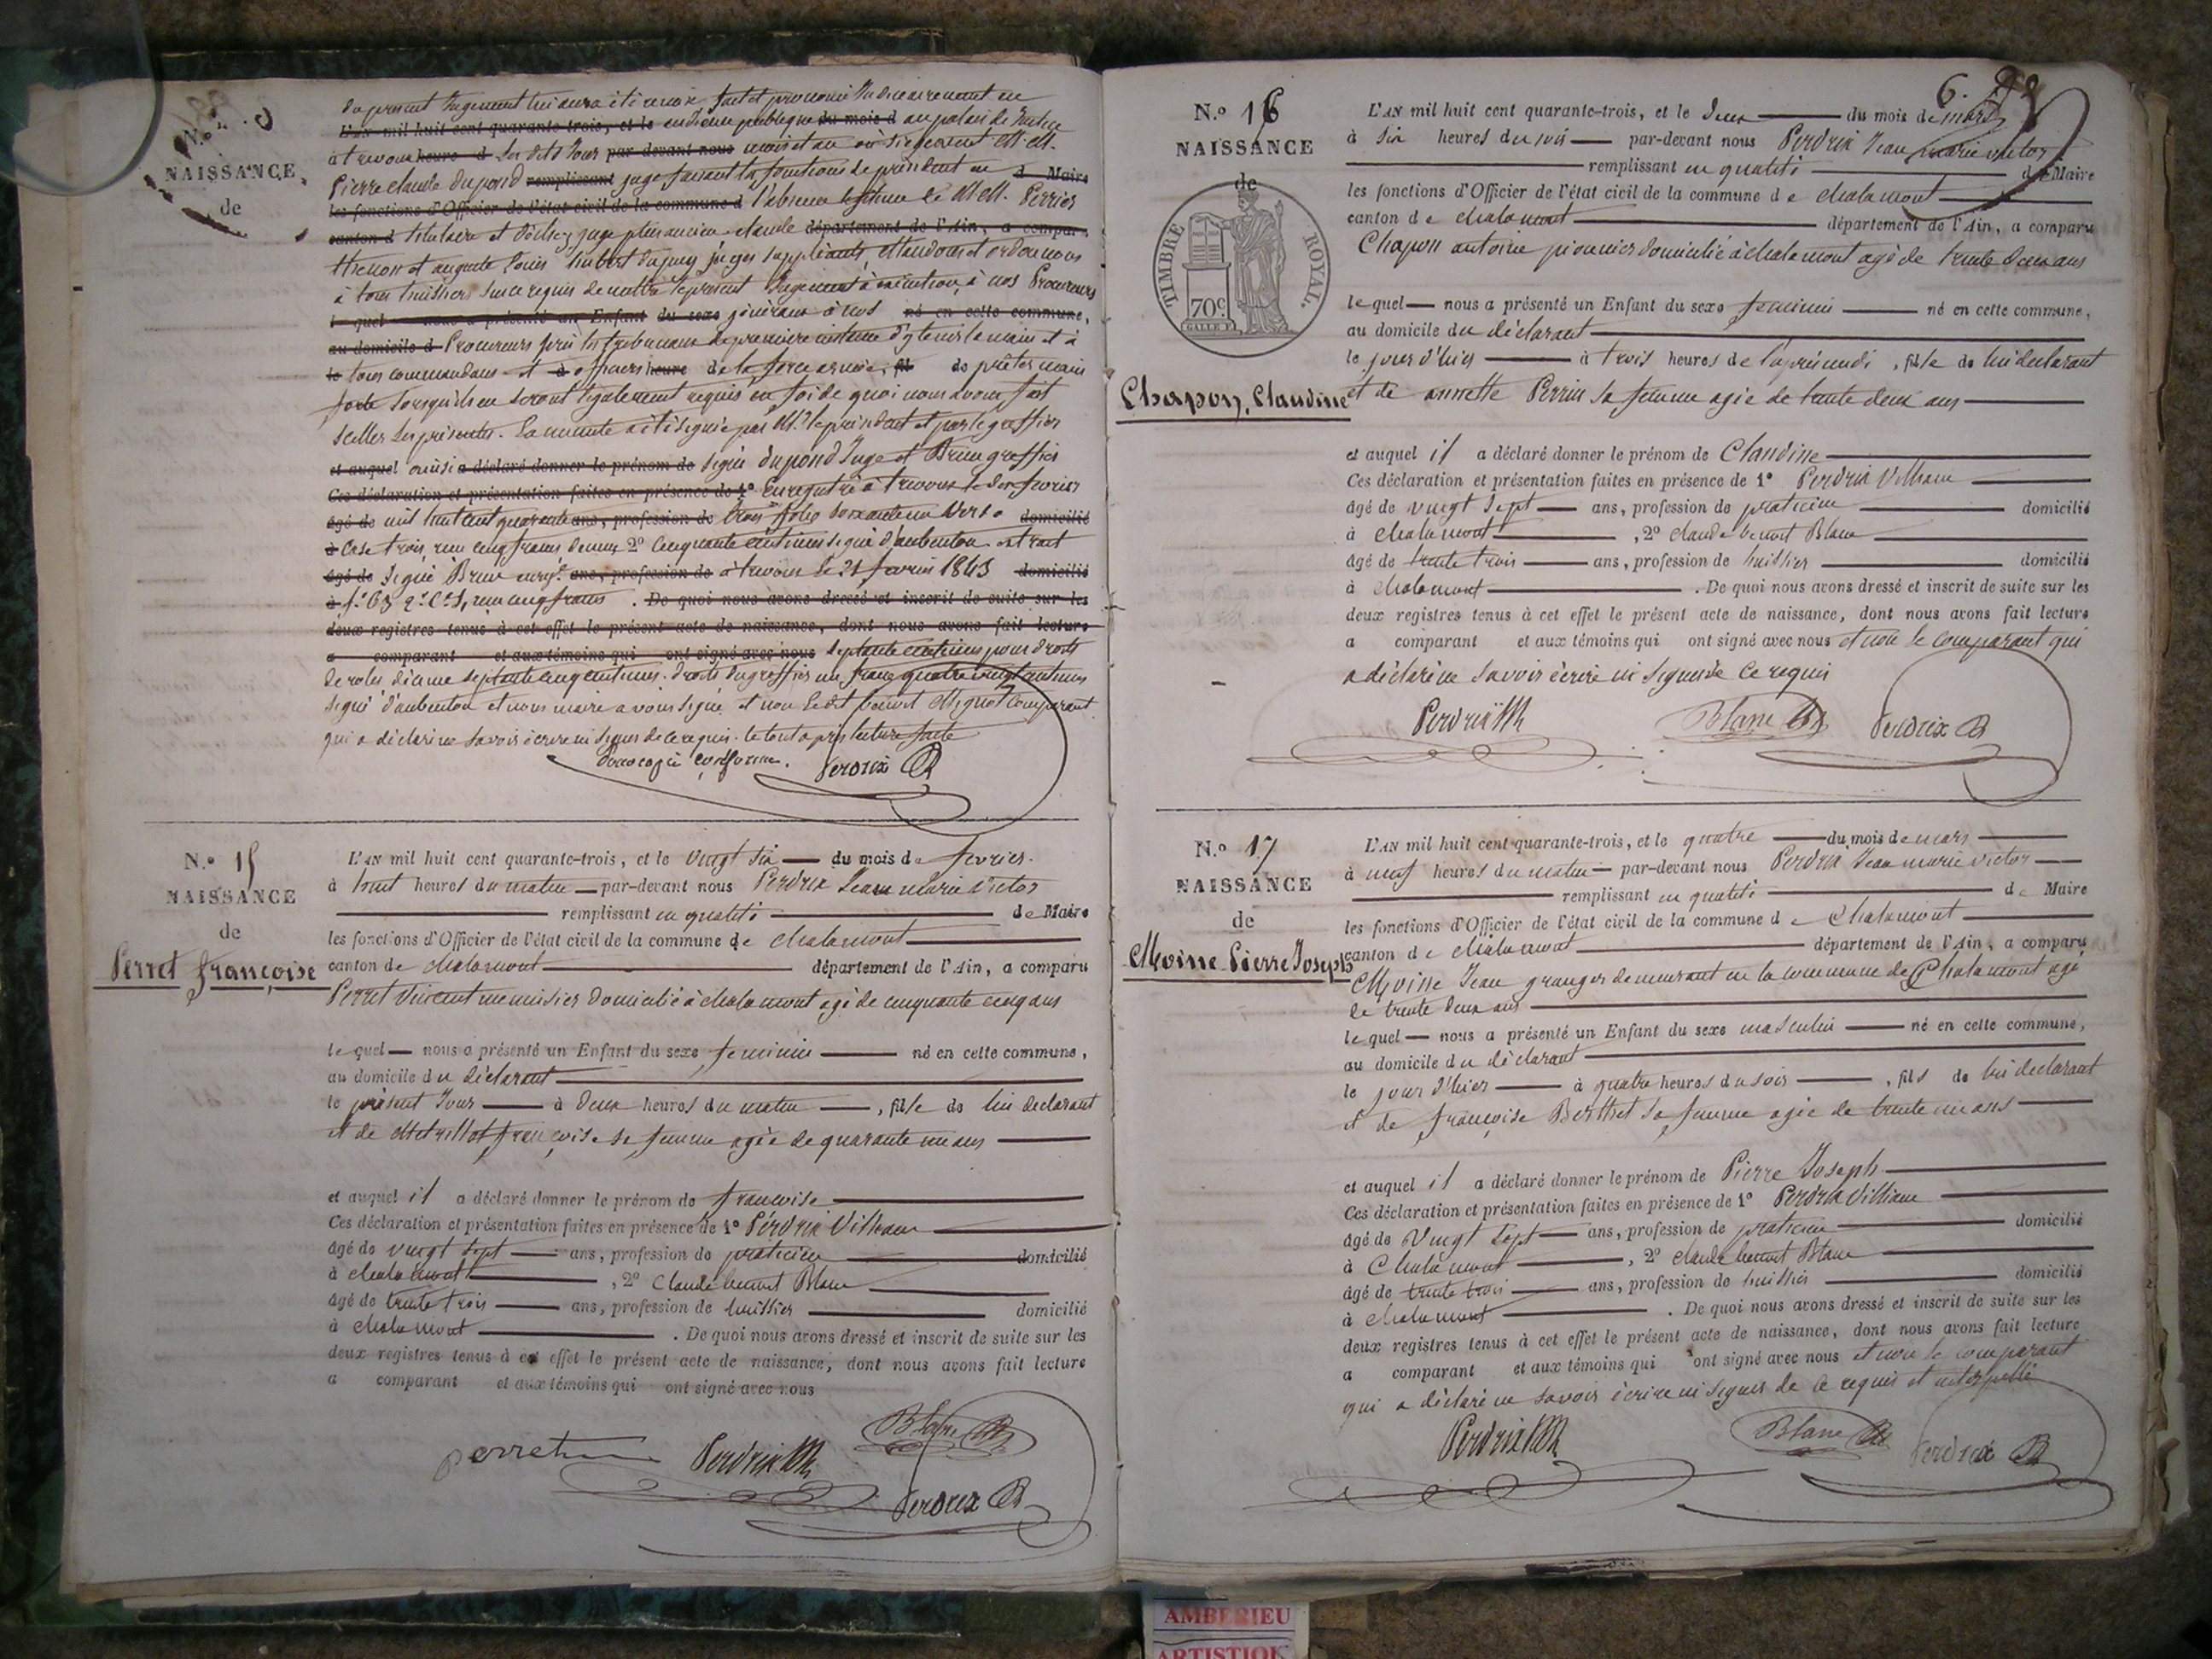 du present Jugement lui aura été remise fait et prononcé Judiciairement en
L'AN mil huit cent quarante-trois, et le audience publique du mois d au palais de Justice
à trevoux heure d les dits Jour par-devant nous mois et an où siégeaient MM.
Pierre claude dupond remplissant juge faisant les fonctions de président en d Maire
les fonctions d'Officier de l'état civil de la commune d l'absence légitime de M. Perrier
canton d titulaire et juge plus ancien claude département de l'Ain, a comparu
et auguste Louis hubert dupuy juges suppléants, Mandons et ordonnons
à tous huissiers sur ce requis de mettre le présent Jugement à exécution, à nos Procureurs
le quel nous a présenté un Enfant du sexe généraux à nos né en cette commune,
au domicile d Procureurs près les tribunaux de première instance d'y tenir la main et à
le tous commandans et à officiers heure de la force armée, fil de prêter main
forte lorsqu'ils en seront légalement requis en foi de quoi nous avons fait
sceller les présentes. La minute a été signée par Mr le président et par le greffier
et auquel ainsi a déclaré donner le prénom de signé dupond Juge et Brun greffier
Ces déclaration et présentation faites en présence de 1º Enregistré à trevoux le dix fevrier
âgé de mil huit cent quarante ans, profession de trois folio soixante un verso domicilié
à case trois, reçu cinq francs, decime 2º Cinquante centimes signé d'aubenton extrait
âgé de signé Brun enregt. ans, profession de à trevoux le 21 fevrier 1843 domicilié
à reçu cinq francs . De quoi nous avons dressé et inscrit de suite sur les
deux registres tenus à cet effet le présent acte de naissance, dont nous avons fait lecture
a comparant et aux témoins qui ont signé avec nous septante centimes pour droits
de roles décime septante cinq centimes. droits du greffier un franc quatre vingt centimes
signé d'aubenton et nous maire avons signé et non le dit benoit Mignot comparant
qui a déclaré ne savoir écrire ni signer de ce requis. le tout après lecture faite
Pour copie conforme. Perdrix
N.º
NAISSANCE
de
N.º 15
NAISSANCE
de
Perret françoise
L'AN mil huit cent quarante-trois, et le vingt six du mois de fevrier.
à huit heures du matin par-devant nous Perdrix Jean marie Victor
remplissant en qualité de Maire
les fonctions d'Officier de l'état civil de la commune de chalamont
canton de chalamont département de l'Ain, a comparu
Perret Vincent menuisier domicilié à chalamont agé de cinquante cinq ans
le quel nous a présenté un Enfant du sexe feminin né en cette commune,
au domicile du déclarant
le présent Jour à deux heures du matin , fille de lui declarant
et de françoise sa femme agée de quarante un ans
et auquel il a déclaré donner le prénom de françoise
Ces déclaration et présentation faites en présence de 1º Perdrix William
âgé de vingt sept ans, profession de praticien domicilié
à chalamont , 2º Claude benoit Blanc
âgé de trente trois ans, profession de huissier domicilié
à chalamont . De quoi nous avons dressé et inscrit de suite sur les
deux registres tenus à cet effet le présent acte de naissance, dont nous avons fait lecture
a comparant et aux témoins qui ont signé avec nous
Blanc
perret Perdrix W
Perdrix
6.
N.º 16
NAISSANCE
de
TIMBRE ROYAL.
70c
Chapon, Claudine
L'AN mil huit cent quarante-trois, et le deux du mois de mars
à six heures du soir par-devant nous Perdrix Jean marie victor
remplissant en qualité de Maire
les fonctions d'Officier de l'état civil de la commune de chalamont
canton de chalamont département de l'Ain, a comparu
Chapon antoine pionnier domicilié à chalamont agé de trente deux ans
le quel nous a présenté un Enfant du sexe feminin né en cette commune,
au domicile du déclarant
le jour d'hier à trois heures de l'après midi , fille de lui declarant
et de annette Perrin sa femme agée de trente deux ans
et auquel il a déclaré donner le prénom de Claudine
Ces déclaration et présentation faites en présence de 1º Perdrix William
âgé de vingt sept ans, profession de praticien domicilié
à chalamont , 2º claude benoit Blanc
âgé de trente trois ans, profession de huissier domicilié
à chalamont . De quoi nous avons dressé et inscrit de suite sur les
deux registres tenus à cet effet le présent acte de naissance, dont nous avons fait lecture
a comparant et aux témoins qui ont signé avec nous et non le comparant qui
a déclaré ne savoir écrire ni signer de ce requis
Perdrix W Blanc Perdrix
N.º 17
NAISSANCE
de
Moine Pierre Joseph
L'AN mil huit cent quarante-trois, et le quatre du mois de mars
à neuf heures du matin par-devant nous Perdrix Jean marie victor
remplissant en qualité de Maire
les fonctions d'Officier de l'état civil de la commune de Chalamont
canton de chalamont département de l'Ain, a comparu
Moine Jean granger demeurant en la commune de Chalamont agé
de trente deux ans
le quel nous a présenté un Enfant du sexe masculin né en cette commune,
au domicile du déclarant
le jour d'hier à quatre heures du soir , fils de lui declarant
et de françoise Berthet sa femme agée de trente un ans
et auquel il a déclaré donner le prénom de Pierre Joseph
Ces déclaration et présentation faites en présence de 1º Perdrix William
âgé de Vingt sept ans, profession de praticien domicilié
à Chalamont , 2º claude benoit Blanc
âgé de trente trois ans, profession de huissier domicilié
à chalamont . De quoi nous avons dressé et inscrit de suite sur les
deux registres tenus à cet effet le présent acte de naissance, dont nous avons fait lecture
a comparant et aux témoins qui ont signé avec nous et non le comparant
qui a déclaré ne savoir écrire ni signer de ce requis et interpellé
Perdrix W Blanc Perdrix
AMBERIEU
ARTISTIQ